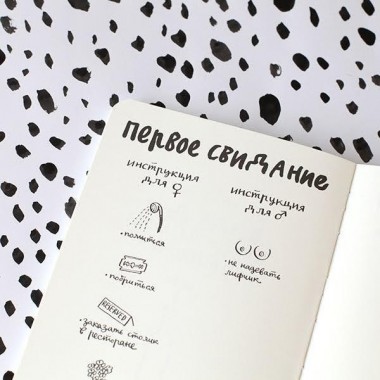 первое свидание
инструкция
для ♀
·помыться
·побриться
RESERVED
·заказать столик
в ресторане
инструкция
для ♂
·не надевать
лифчик